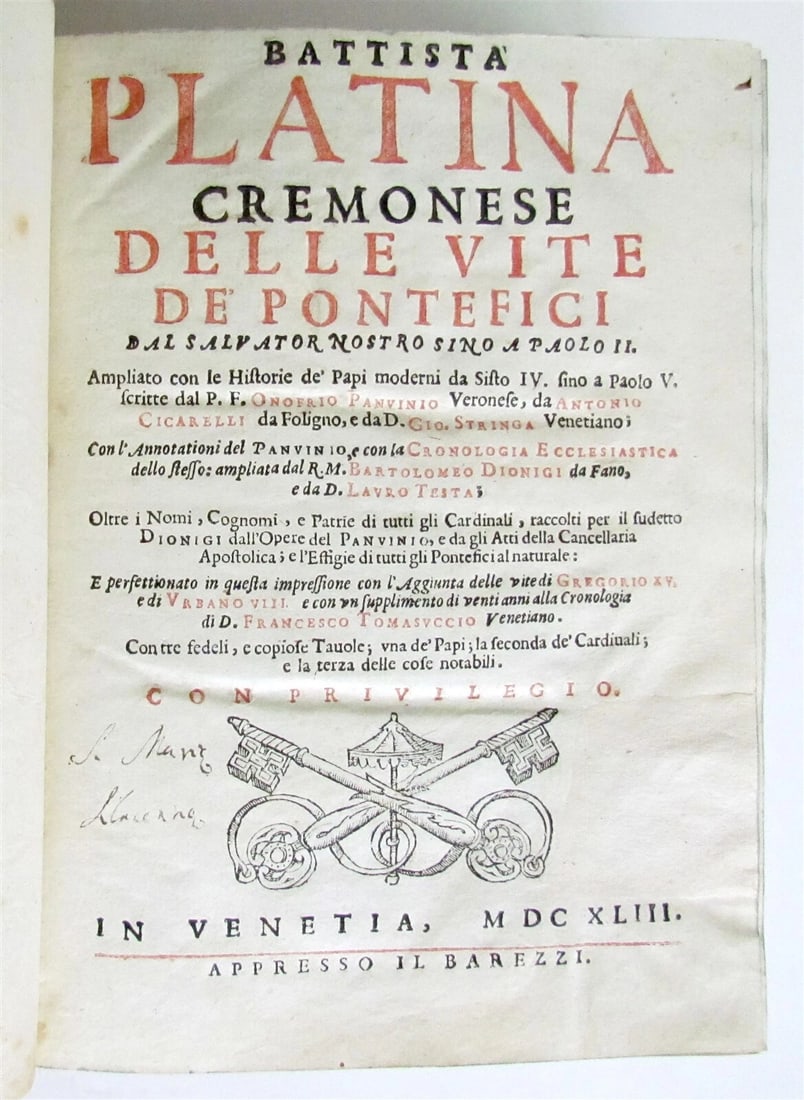 BATTISTA
PLATINA
CREMONESE
DELLE VITE
DE' PONTEFICI
DAL SALVATOR NOSTRO SINO A PAOLO II.
Ampliato con le Hiſtorie de' Papi moderni da Siſto IV. ſino a Paolo V.
ſcritte dal P. F. ONOFRIO PANVINIO Veroneſe, da ANTONIO
CICARELLI da Foligno, e da D. GIO. STRINGA Venetiano;
Con l'Annotationi del PANVINIO, e con la CRONOLOGIA ECCLESIASTICA
dello ſteſſo: ampliata dal R. M. BARTOLOMEO DIONIGI da Fano,
e da D. LAVRO TESTA;
Oltre i Nomi, Cognomi, e Patrie di tutti gli Cardinali, raccolti per il ſudetto
DIONIGI dall'Opere del PANVINIO, e da gli Atti della Cancellaria
Apoſtolica; e l'Effigie di tutti gli Pontefici al naturale:
E perfettionato in queſta impreſſione con l'Aggiunta delle vite di GREGORIO XV.
e di VRBANO VIII. e con vn ſupplimento di venti anni alla Cronologia
di D. FRANCESCO TOMASVCCIO Venetiano.
Con tre fedeli, e copioſe Tauole; vna de' Papi; la ſeconda de' Cardinali;
e la terza delle coſe notabili.
CON PRIVILEGIO.
S. Mary
IN VENETIA, MDCXLIII.
APPRESSO IL BAREZZI.